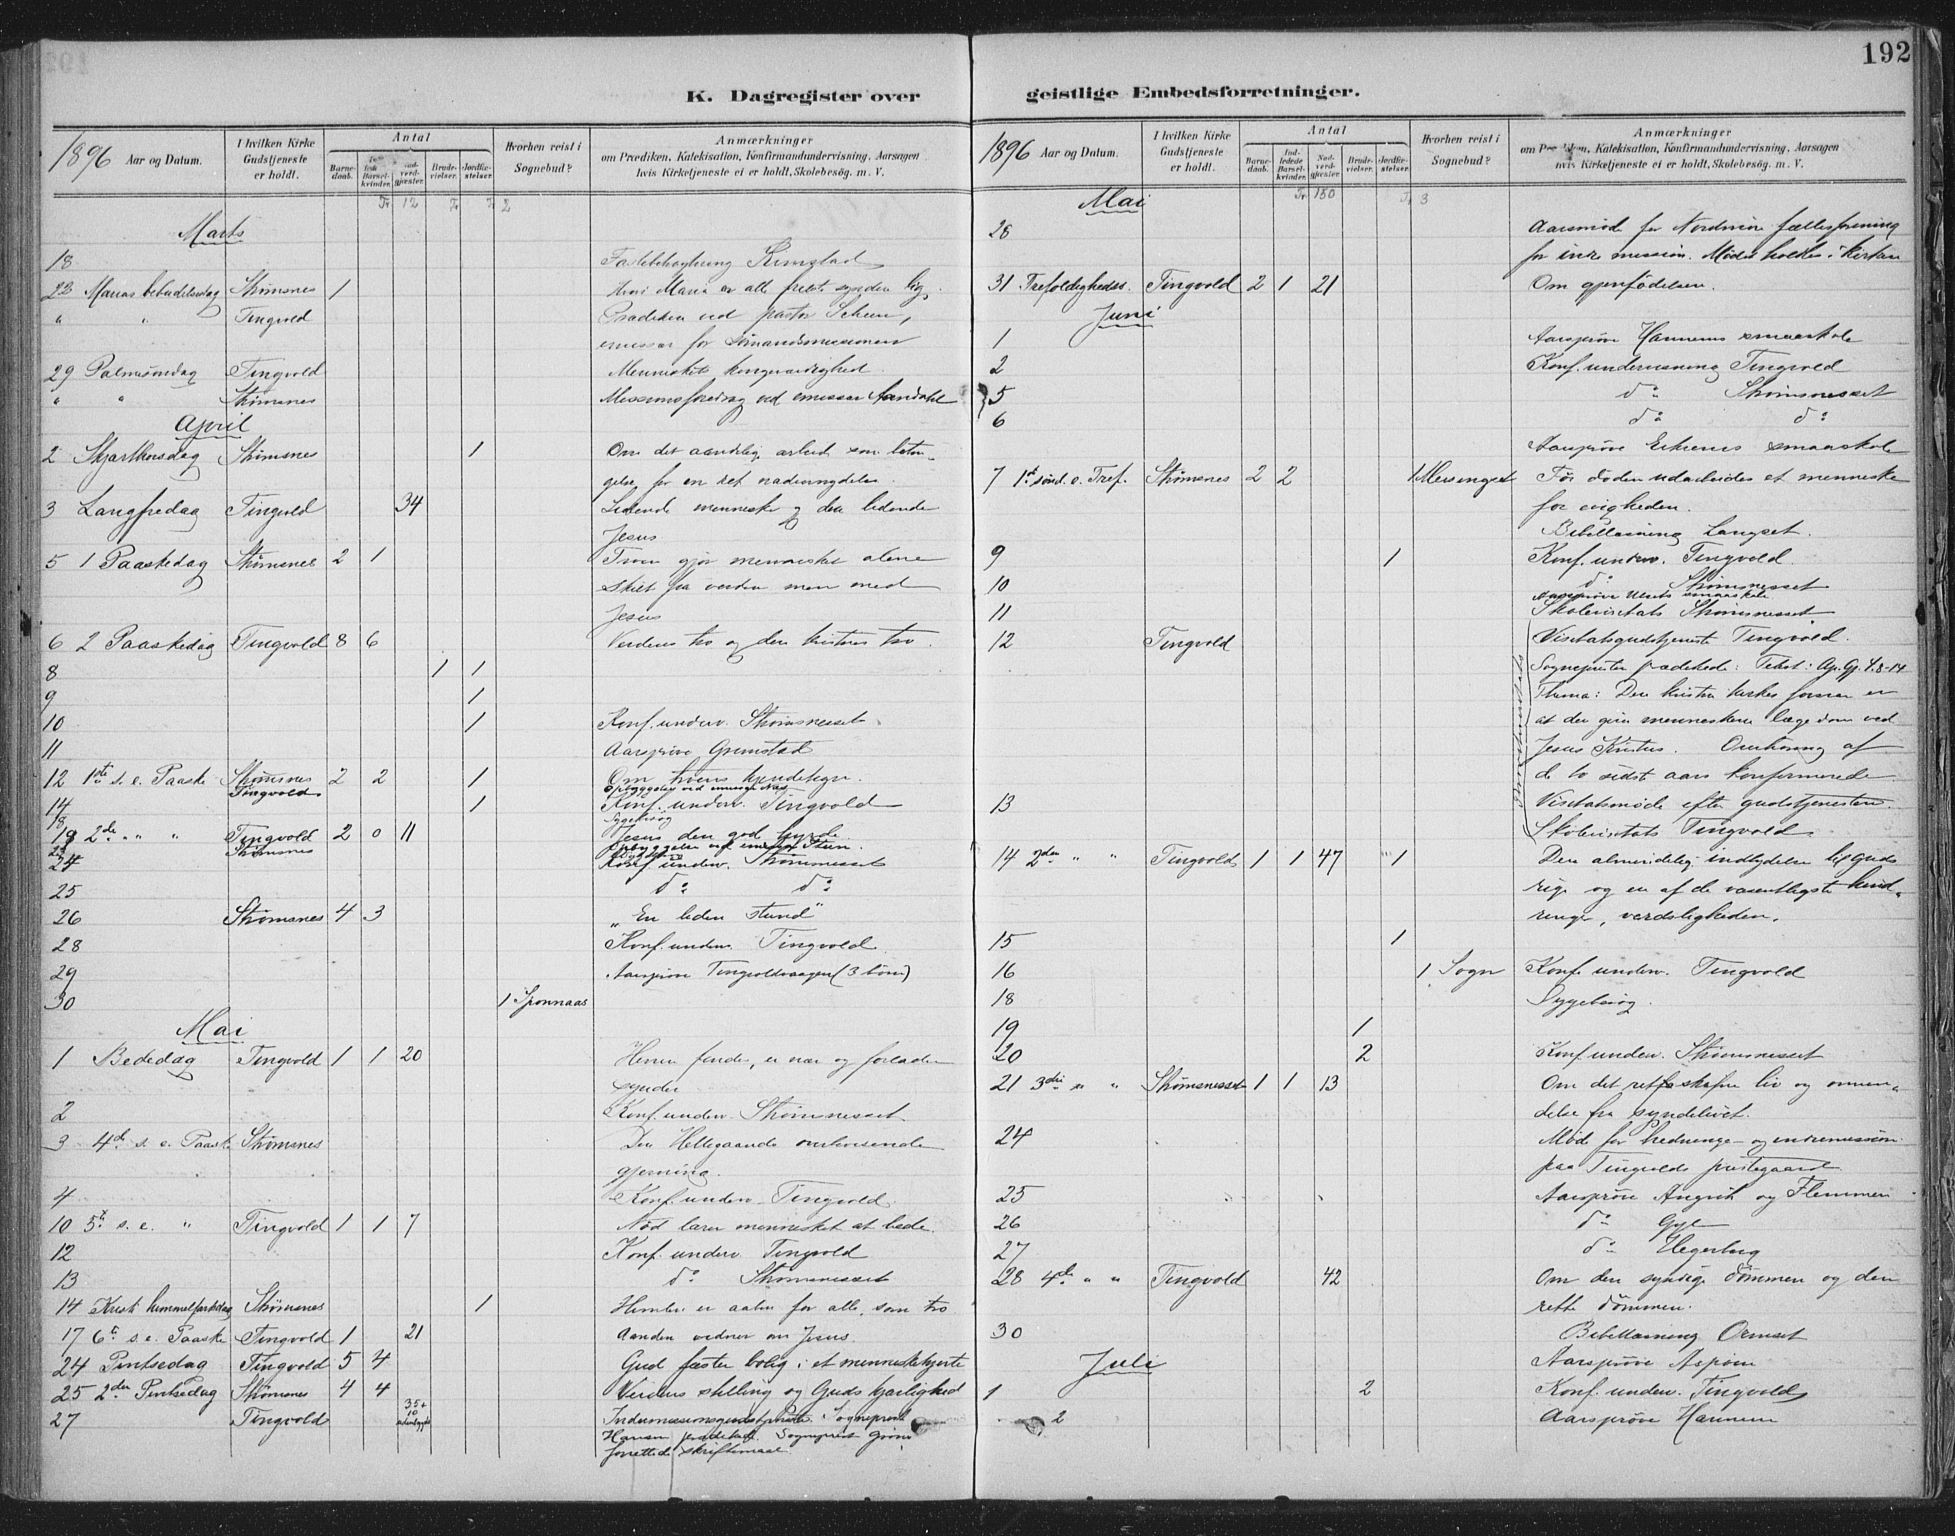 192
K. Dagregister over
1896 Aar og Datum.
I hvilken Kirke Gudstjeneste er holdt.
Antal
Barnedaab.
Brudevielser.
Jordfæstelser.
Hvorhen reist i Sognebud?
Anmærkninger
om Prædiken, Katekisation, Konfirmandundervisning, Aarsagen
hvis Kirketjeneste ei er holdt, Skolebesøg. m. V.
Tr. 12 Tr Tr 2
Marts
18
Marias bebudelsesdag Strømsnes 1
" " Tingvold Prædiken ved pastor
29 Palmesøndag Tingvold Menneskets
" " Strømsnes Missionsforedrag ved emissær Aandahl
April
2 Skjærthorsdag Strømsnes 1 Om det aandelig arbeid som betin-
gelse for en ret nadvernydelse.
3 Langfredag Tingvold 34 Lidende menneske og den lidende
Jesus
5 1 Paaskedag Strømsnes 2 1 Troen gjør mennesket alene
skilt fra verden men med
Jesus
6 2 Paaskedag Tingvold 8 6 Verdens tro og den kristnes tro.
8 1 1
9 1
10 1 Konf. underv. Strømsnesset
11 Aarsprøve Grimstad
12 1ste s. e. Paaske Strømsnes 2 2 1 Om troens kjendetegn.
Tingvold
14 1 Konf. underv. Tingvold
18 Sygebesøg
19 2de " " Tingvold 2 0 11 Jesus den gode hyrde.
Strømsnes
24 Konf. underv. Strømsnesset
25 do do
26 Strømsnes 4 3 „En liden stund"
28 Konf. underv. Tingvold
29 Aarsprøve Tingvoldvaagen (3 børn)
30 1
Mai
1 Bededag Tingvold 1 1 20 Herren findes, er nær og forlader
synder
2 Konf. underv. Strømsnesset
3 4de s. e. Paaske Strømsnes Den Helligaands overbevisende
gjerning.
4 Konf. underv. Tingvold.
10 5te s. e. " Tingvold 1 1 7 Nød lærer mennesket at bede.
12 Konf. underv. Tingvold
13 do Strømsnesset
14 Kristi himmelfartsdag Strømsnes 1 Himlen er aaben for alle, som tro
17 6te s. e. Paaske Tingvold 1 21 Aanden vidner om Jesus.
24 Pintsedag Tingvold 5 4 Gud fæster bolig i et menneskehjerte
25 2den Pintsedag Strømsnes 4 4 Verdens stilling og Guds kjærlighed
27 Tingvold 35+ 10 Indremissionsgudstjeneste. Sogneprest
Hansen prædikede. Sogneprest
forrettede skriftemaal
geistlige Embedsforretninger.
1896 Aar og Datum.
I hvilken Kirke Gudstjeneste er holdt.
Antal
Barnedaab.
Indledede Barselkvinder.
Nadverdgjæster.
Brudevielser.
Jordfæstelser.
Hvorhen reist i Sognebud?
Anmærkninger
om Prædiken, Katekisation, Konfirmandundervisning, Aarsagen
hvis Kirketjeneste ei er holdt, Skolebesøg. m. V.
Tr. 150 Tr 3
Mai
28 Aarsmøde for Nordmøre fællesforening
for indre mission. Møder holdtes i kirken
31 Trefoldighedss. Tingvold 2 1 21 Om gjenfødelsen.
Juni
1 Aarsprøve Hannems smaaskole
2 Konf. undervisning Tingvold
5 do Strømsnesset
6 do do
Aarsprøve smaaskole
7 1ste sønd. e. Tref. Strømsnes 2 2 1 Før døden udarbeides et menneske
for evigheden.
Bibellæsning Langset.
9 1 Konf. underv. Tingvold.
10 do Strømsnesset
Aarsprøve smaaskole
11 Skolevisitats Strømsnesset.
12 Tingvold Visitatsgudstjeneste Tingvold.
Sognepresten prædikede: Tekst: Ap. Gj. 4.8-14
Thema: Den kristne kirkes formaal er
at den giver menneskene lægedom ved
Jesus Kristus. Overhøring af
de to sidst aars konfirmerede
13 Visitatsmøde efter gudstjenesten.
Skolevisitats Tingvold.
14 2den " " Tingvold 1 1 47 1 Den almindelig indbydelse til Guds
rige og en af de væsentligste hind-
ringer, verdsligheden.
15 1
16 1 Sogn Konf. underv. Tingvold
18 Sygebesøg.
19 1
20 2 Konf. underv. Strømsnesset
21 3die " " Strømsnesset 1 1 13 Om det retskafne liv og omven-
delse fra syndelivet.
24 Møde for hedninge- og indremission
paa Tingvolds prestegaard
25 Aarsprøve Angvik og Flemmen
26 do Gyl
27 do Hegerberg
28 4de " " Tingvold 42 Om den syndige dømmen og den
rette dømmen.
30 Bibellæsning Ormset
Juli
Aarsprøve Aspøen
1 2 Konf. underv. Tingvold
2 Aarsprøve Hannem